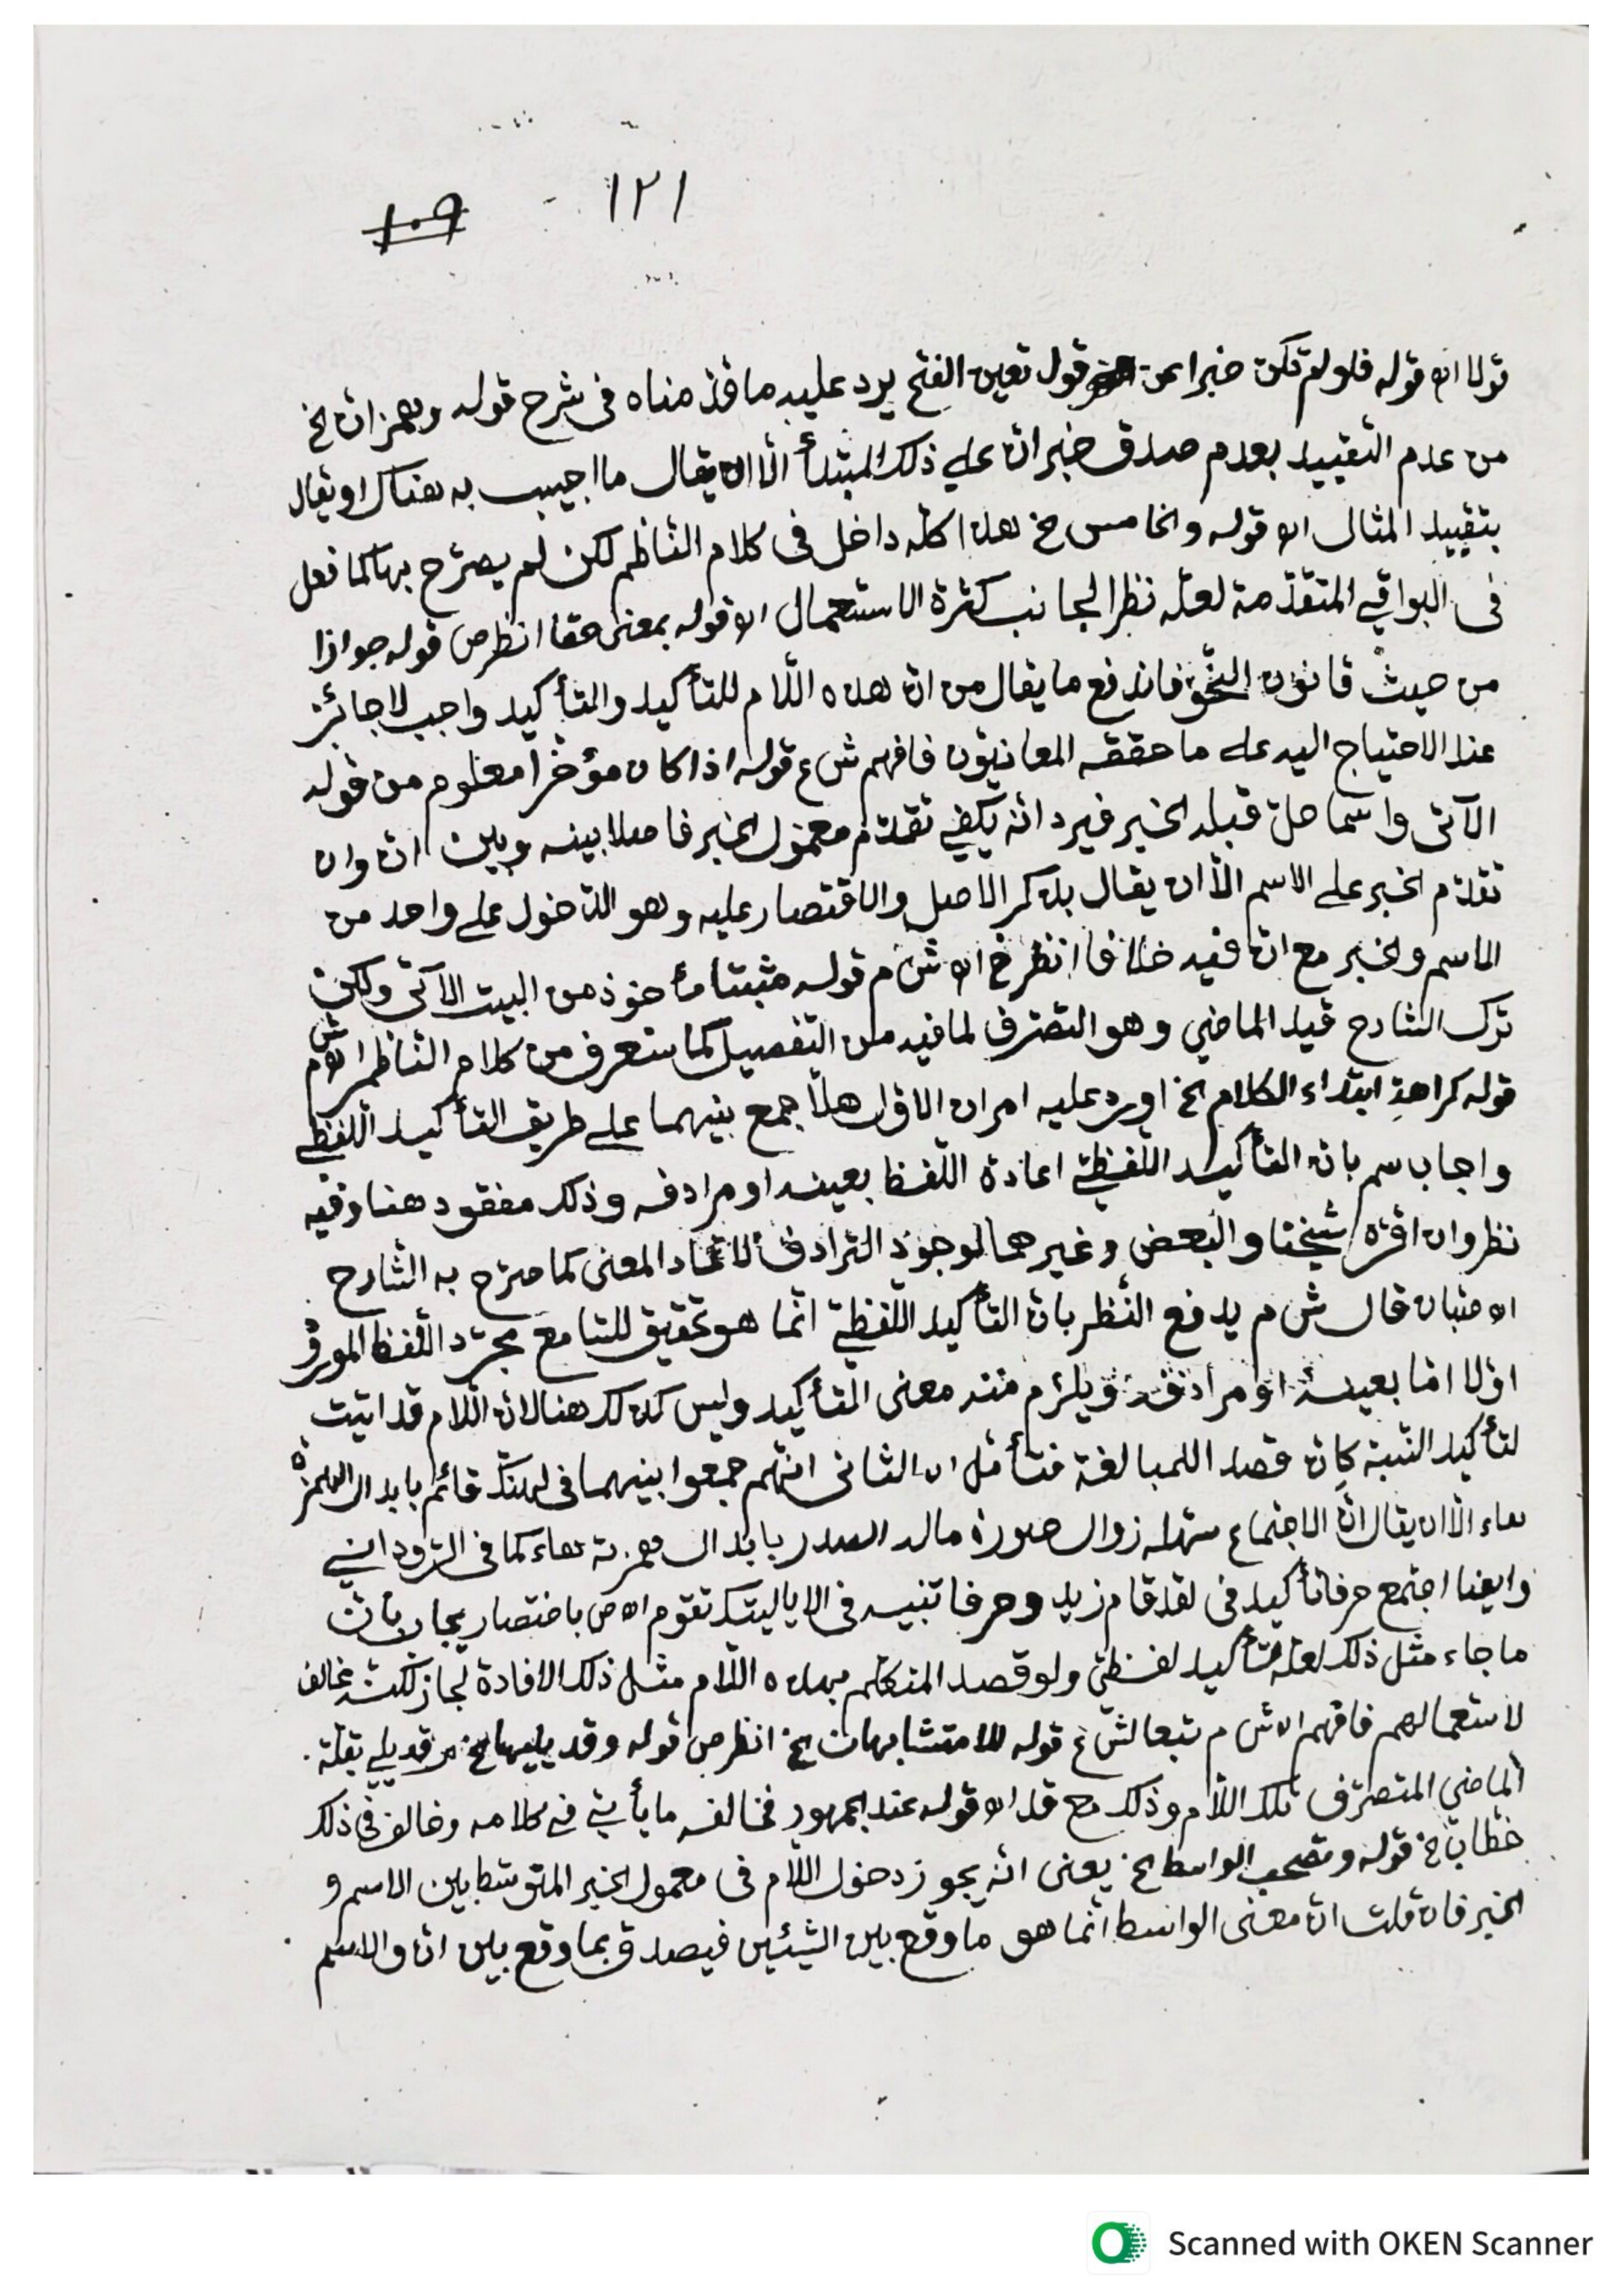 ١٢١
١٠٩
قولا اه قوله فلو لم تكن خبرا عن قول تعين الفتح يرد عليه ما قدّمناه فى شرح قوله وهمز انّ الخ
من عدم التقييد بعدم صدق خبر انّ على ذلك المبتدأ الّا ان يقال ما اجيب به هناك او يقال
بتقييد المثال اه قوله والخامس الخ هذا كلّه داخل فى كلام النّاظم لكن لم يصرّح بها كما فعل
فى البواقي المتقدّمة لعلّه نظرا لجانب كثرة الاستعمال اه قوله بمعنى حقا انظر ص قوله جوازا
من حيث قانون النّحو فاندفع ما يقال من انّ هذه اللّام للتأكيد والتأكيد واجب لا جائز
عند الاحتياج اليه على ما حققه المعانيّون فافهم ش ع قوله اذا كان مؤخّرا معلوم من قوله
الآتى واسما حلّ قبله الخبر فيرد انّه يكفي تقدّم معمول الخبر فاصلا بينه وبين انّ وان
تقدّم الخبر على الاسم الّا ان يقال بذكر الاصل والاقتصار عليه وهو الدّخول على واحد من
الاسم والخبر مع انّ فيه خلافا انظر خ اه ش م قوله مثبتا مأخوذ من البيت الآتى ولكن
ترك الشارح قيد الماضي وهو التصرّف لما فيه من التفصيل كما ستعرف من كلام النّاظم اه ش م
قوله كراهة ابتداء الكلام الخ اورد عليه امران الاوّل هلّا جمع بينهما على طريق التأكيد اللّفظي
واجاب سم بانّ التأكيد اللّفظيّ اعادة اللّفظ بعينه او مرادفه وذلك مفقود هنا وفيه
نظر وان اقرّه شيخنا والبعض وغيرهما لوجود الترادف لاتّحاد المعنى كما صرّح به الشّارح
اه صبان قال ش م يدفع النّظر بانّ التأكيد اللّفظيّ انّما هو تحقيق للسّامع مجرّد اللّفظ المورد
اوّلا امّا بعينه او مرادفه ويلزم منه معنى التأكيد وليس كذلك هنا لانّ اللّام قد اتيت
لتأكيد النّسبة كانّ قصد اللمبالغة فتأمّل اه الثانى انّهم جمعوا بينهما فى لهنّك قائم بابدال الهمزة
هاء الّا ان يقال انّ الاجتماع سهّله زوال صورة ماله الصدر بابدال همزته هاء كما فى الرّوداني
وايضا اجتمع حرفا تأكيد فى لقد قام زيد وحرفا تنبيه فى الا ياليتك تقوم اه ص باختصار يجاب بانّ
ما جاء مثل ذلك لعلّه تأكيد لفظيّ ولو قصد المتكلّم بهذه اللّام مثل ذلك الافادة لجاز لكنّه مخالف
لاستعمالهم فافهم اه ش م تبعا لش ع قوله للا متشابهان الخ انظر ص قوله وقد يليها الخ قد يلي بقلّة
الماضي المتصرّف تلك اللّام وذلك مع قد اه قوله عند الجمهور فخالفه ما يأتي في كلامه وخالف فى ذلك
خطّاب خ قوله وتصحب الواسط الخ يعنى انّه يجوز دخول اللّام فى معمول الخبر المتوسّط بين الاسم و
الخبر فان قلت انّ معنى الواسط انّما هو ما وقع بين الشيئين فيصدق بما وقع بين انّ والاسم
Scanned with OKEN Scanner